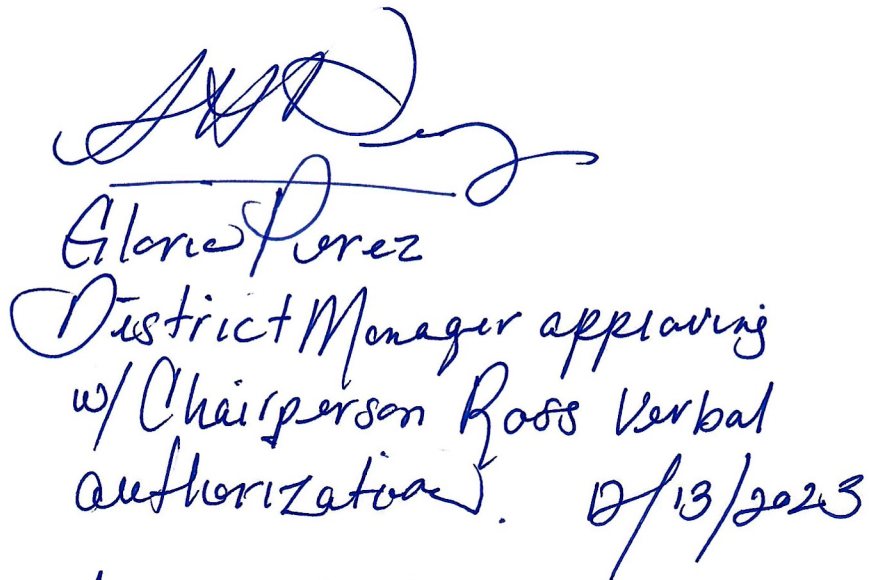 Gloria Perez
District Manager approving
w/ Chairperson Ross Verbal
authorization. 12/13/2023